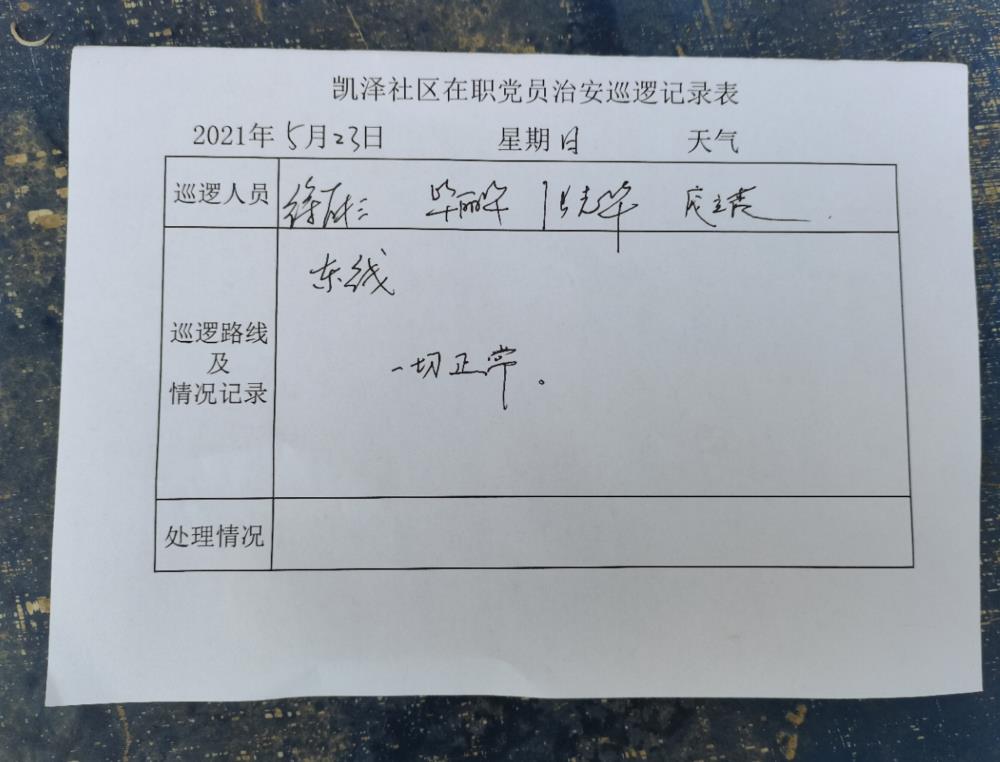 凯泽社区在职党员治安巡逻记录表
2021年 5月23日 星期日 天气
巡逻人员 毕丽华
东线
巡逻路线
及
情况记录
一切正常。
处理情况